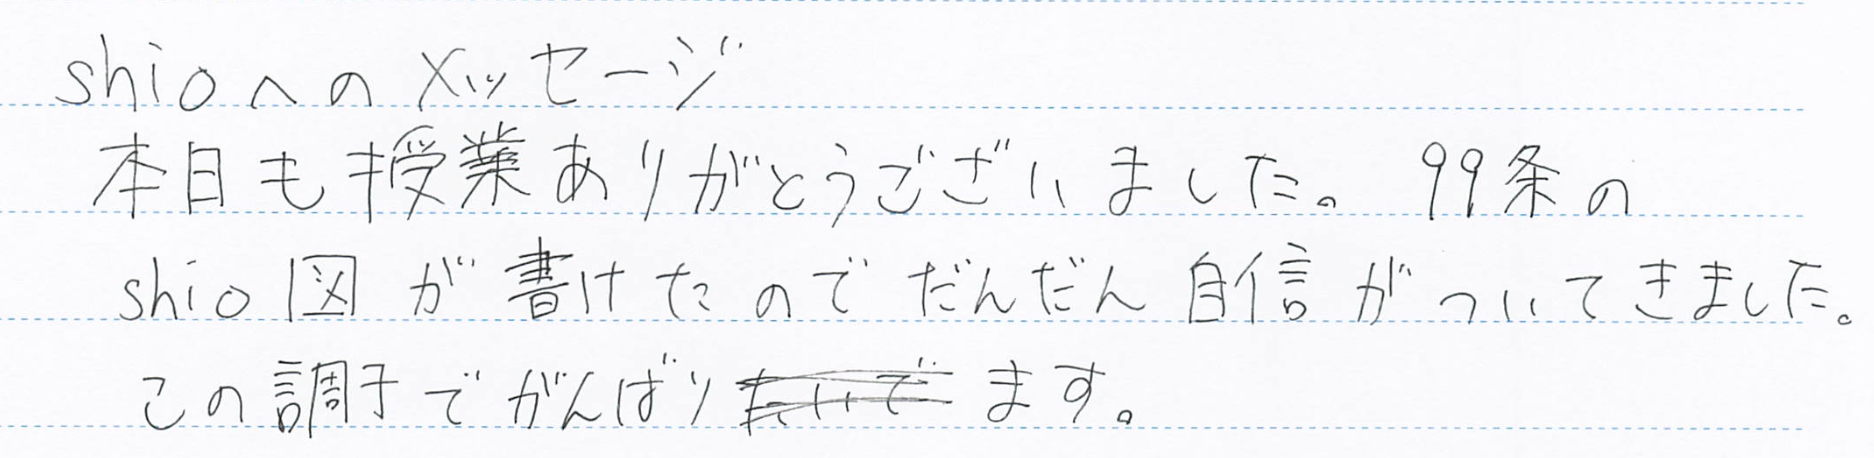 shioへのメッセージ
本日も授業ありがとうございました。99条の
shio図が書けたのでだんだん自信がついてきました。
この調子でがんばりたいでます。